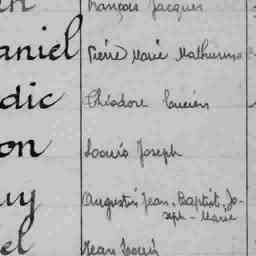 François Jacques
aniel Pierre Marie Mathurin
dic Théodore Lucien
on Louis Joseph
uy Augustin Jean, Baptist, Jo-
seph - Marie
el Jean Louis